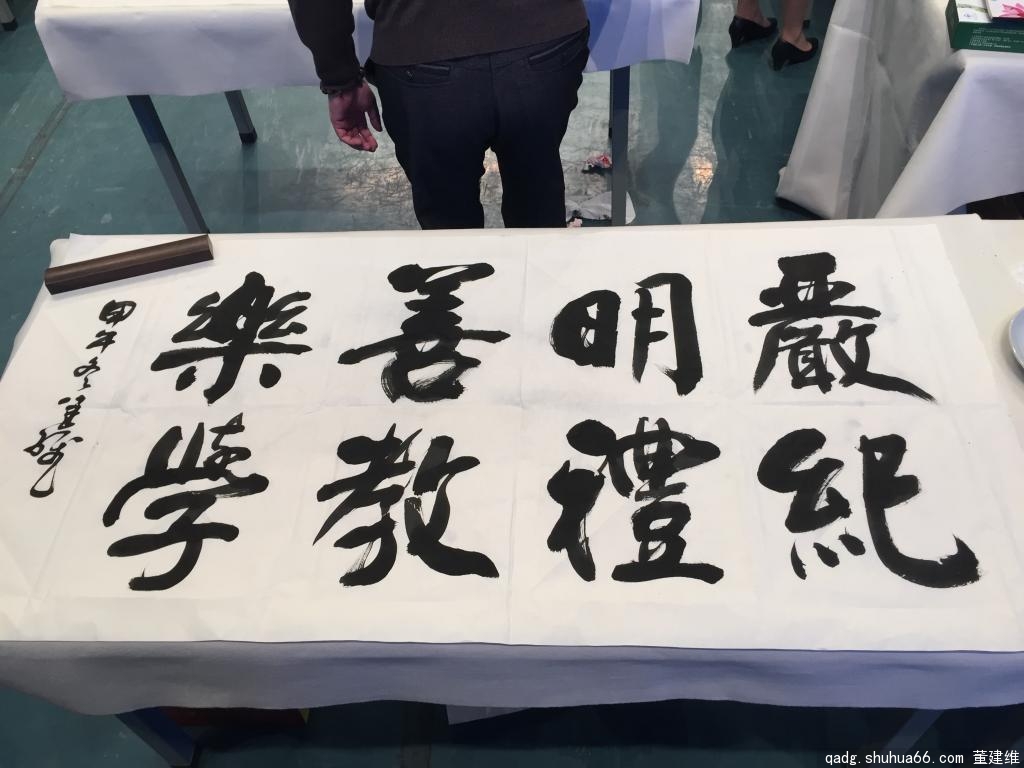 嚴紀
明禮
善教
樂學
甲午冬
qadg.shuhua66.com 董建维